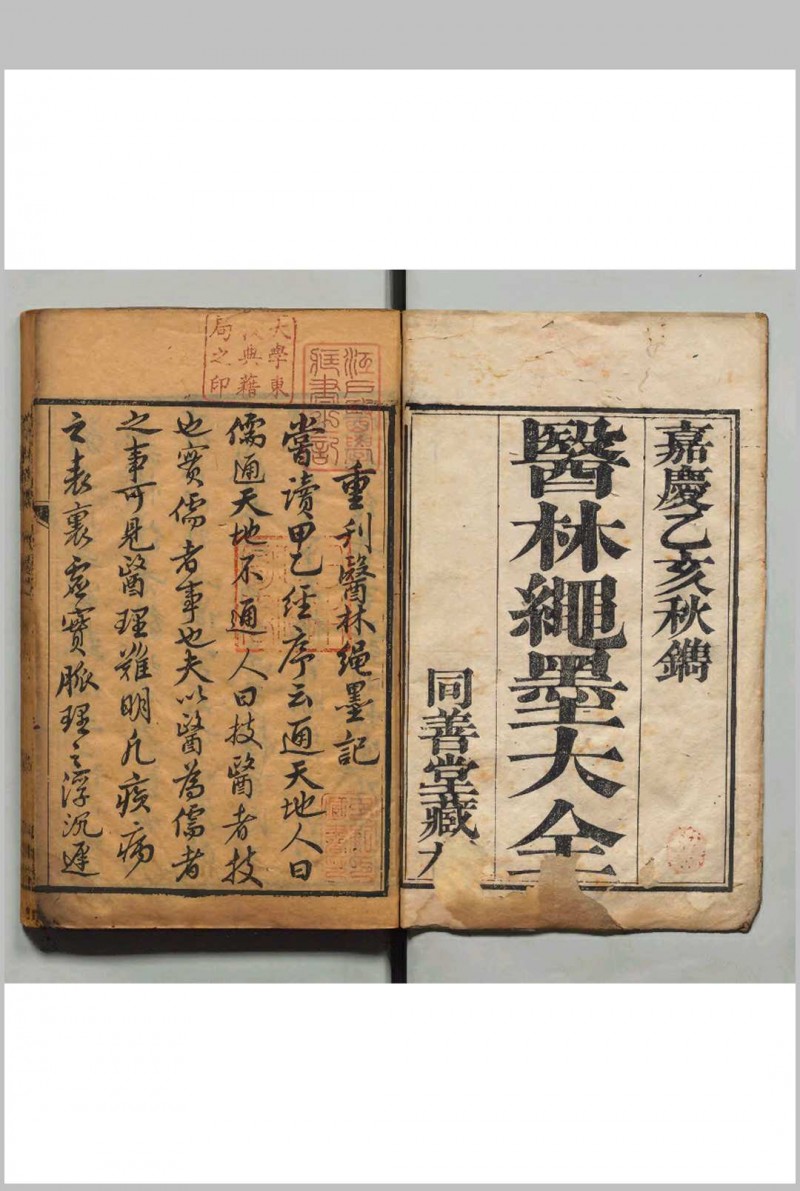 嘉慶乙亥秋鐫
醫林繩墨大全
同善堂藏
重刊醫林繩墨記
嘗讀甲乙經序云通天地人曰
儒通天地不通人曰技醫者技
也實儒者事也夫以醫為儒者
之事可見醫理難明凡痰病
之表裏虛實脈理之浮沉遲
大學東
典藉
局之印